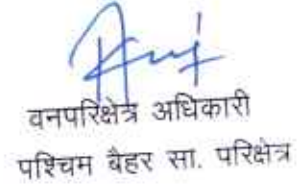 वनपरिक्षेत्र अधिकारी
पश्चिम बैहर सा. परिक्षेत्र